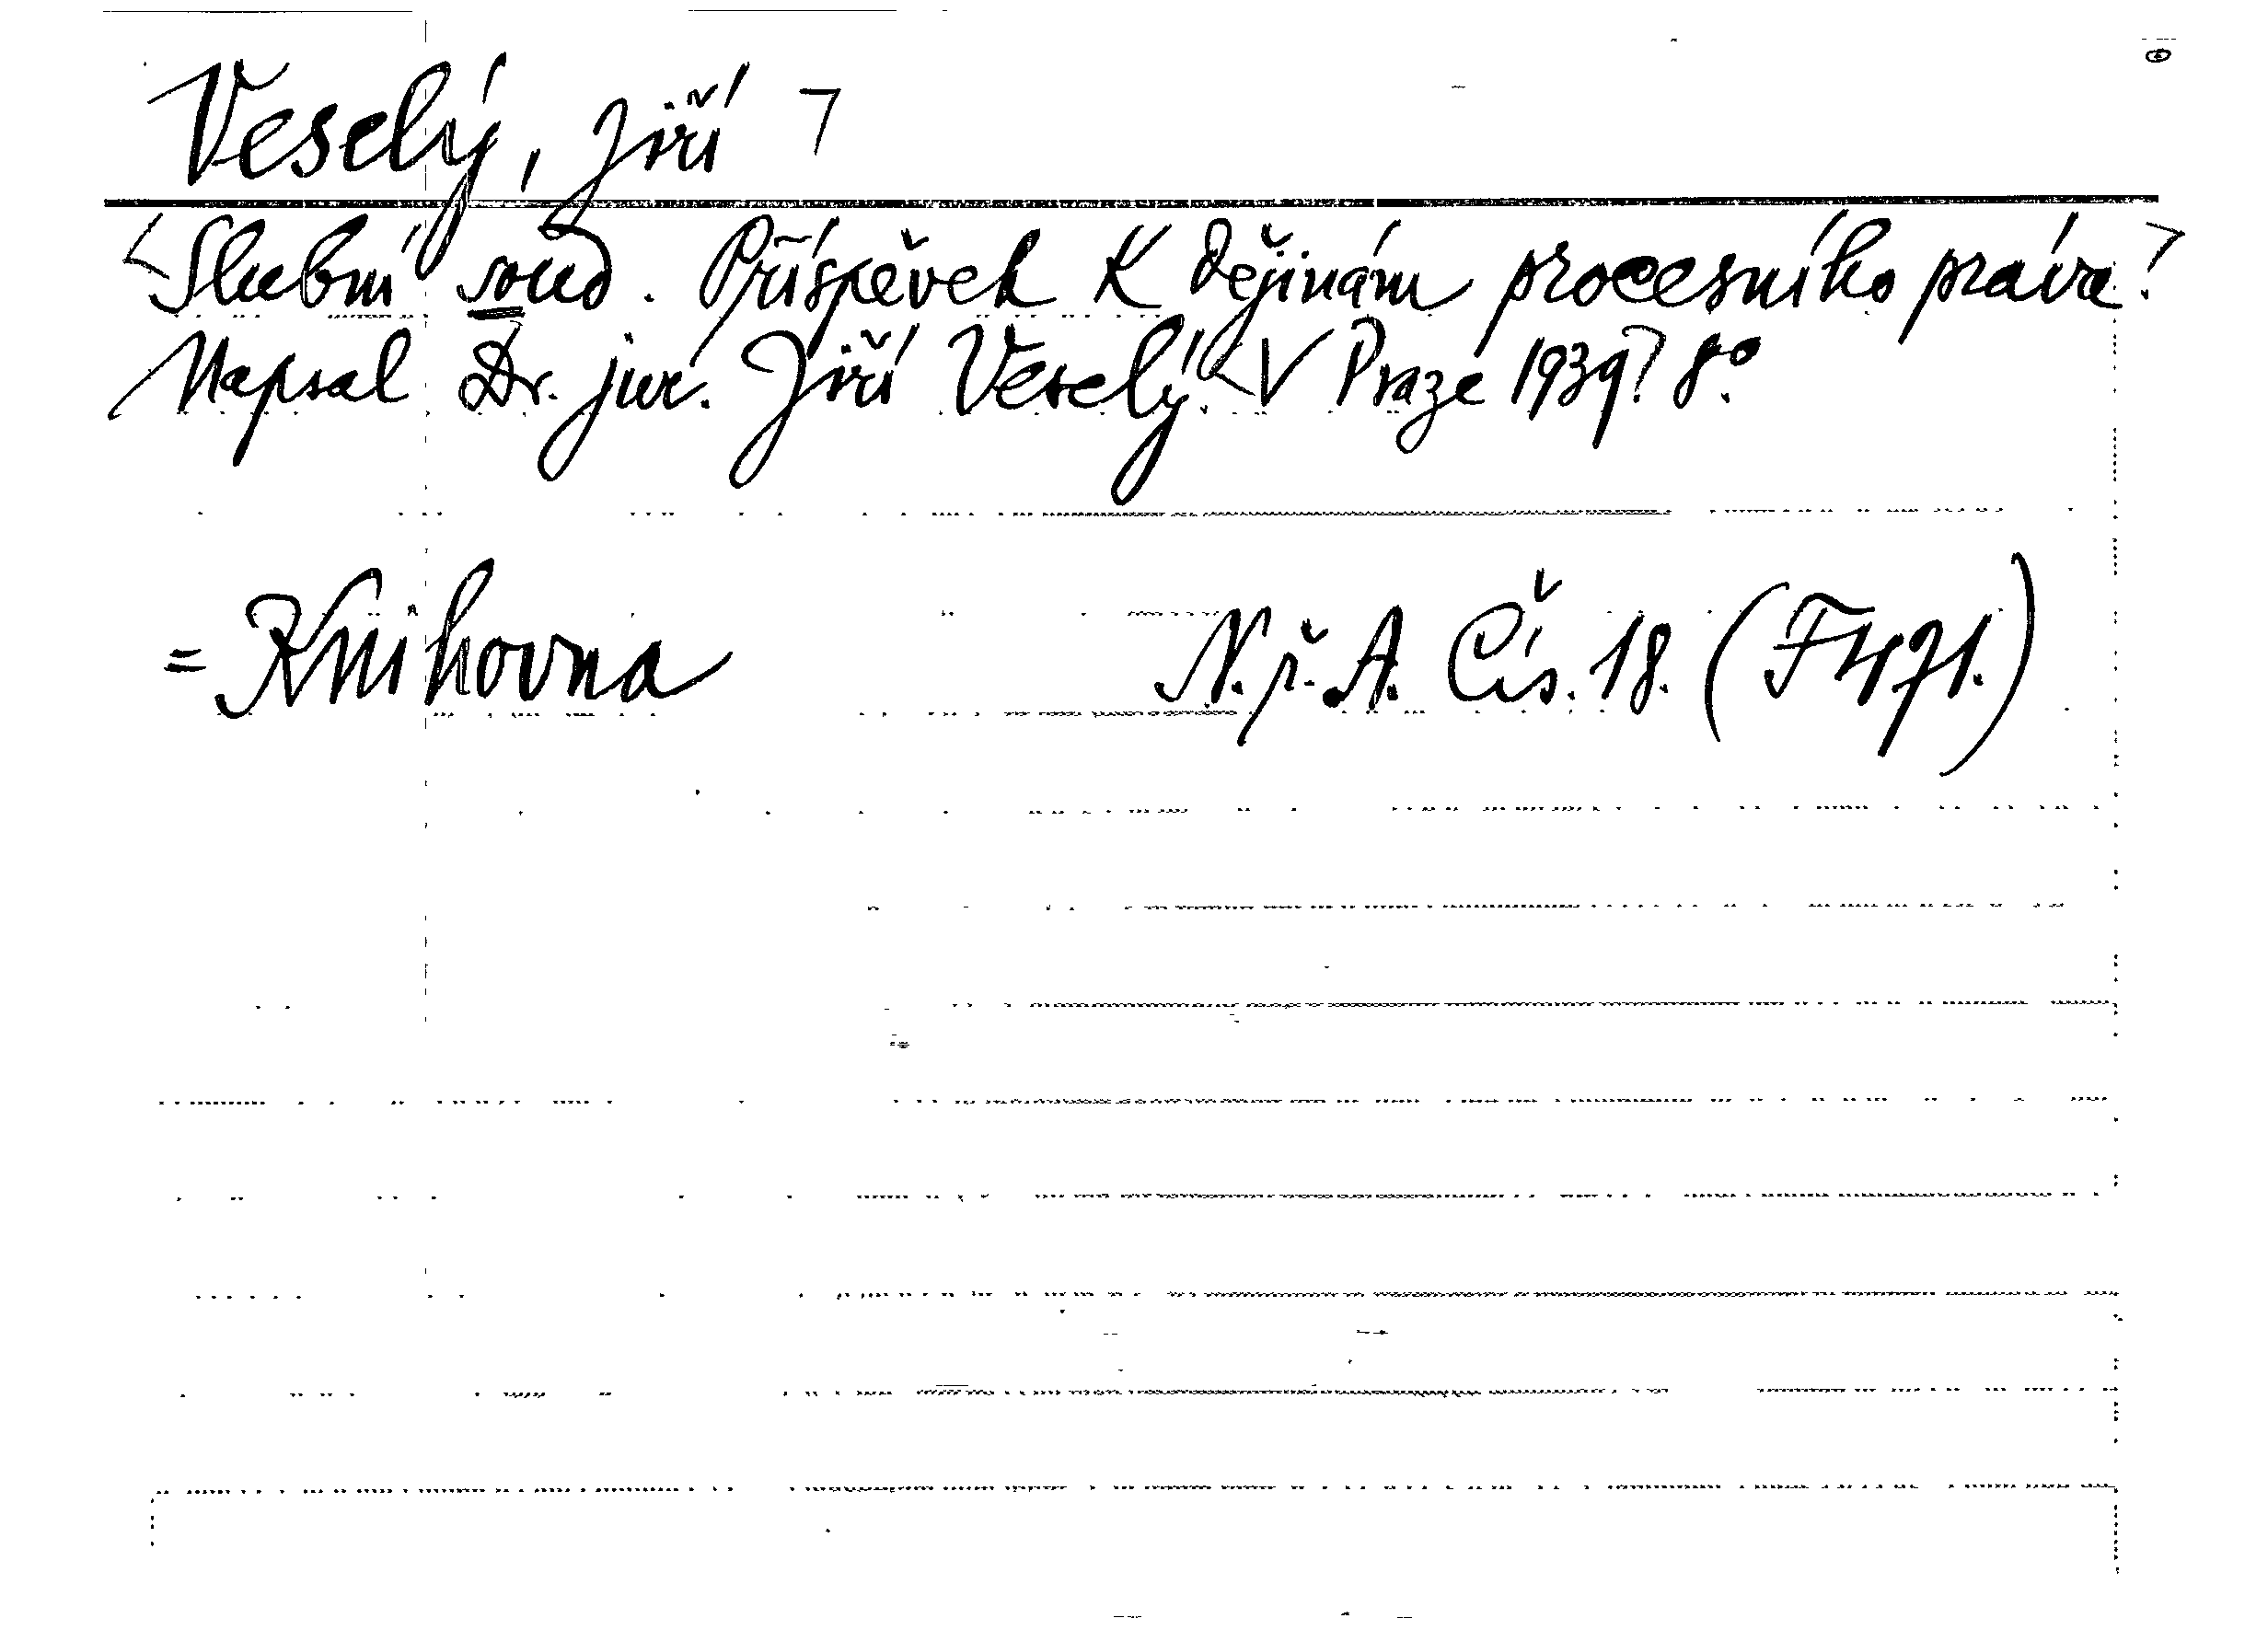 Veselý, Jiří ┐
<Slubní soud. Příspěvek k dějinám procesního práva.>
Napsal Dr. jur. Jiří Veselý. <V Praze 1939> 8°.
= Knihovna N. ř. A. Čís. 18. (F 471.)